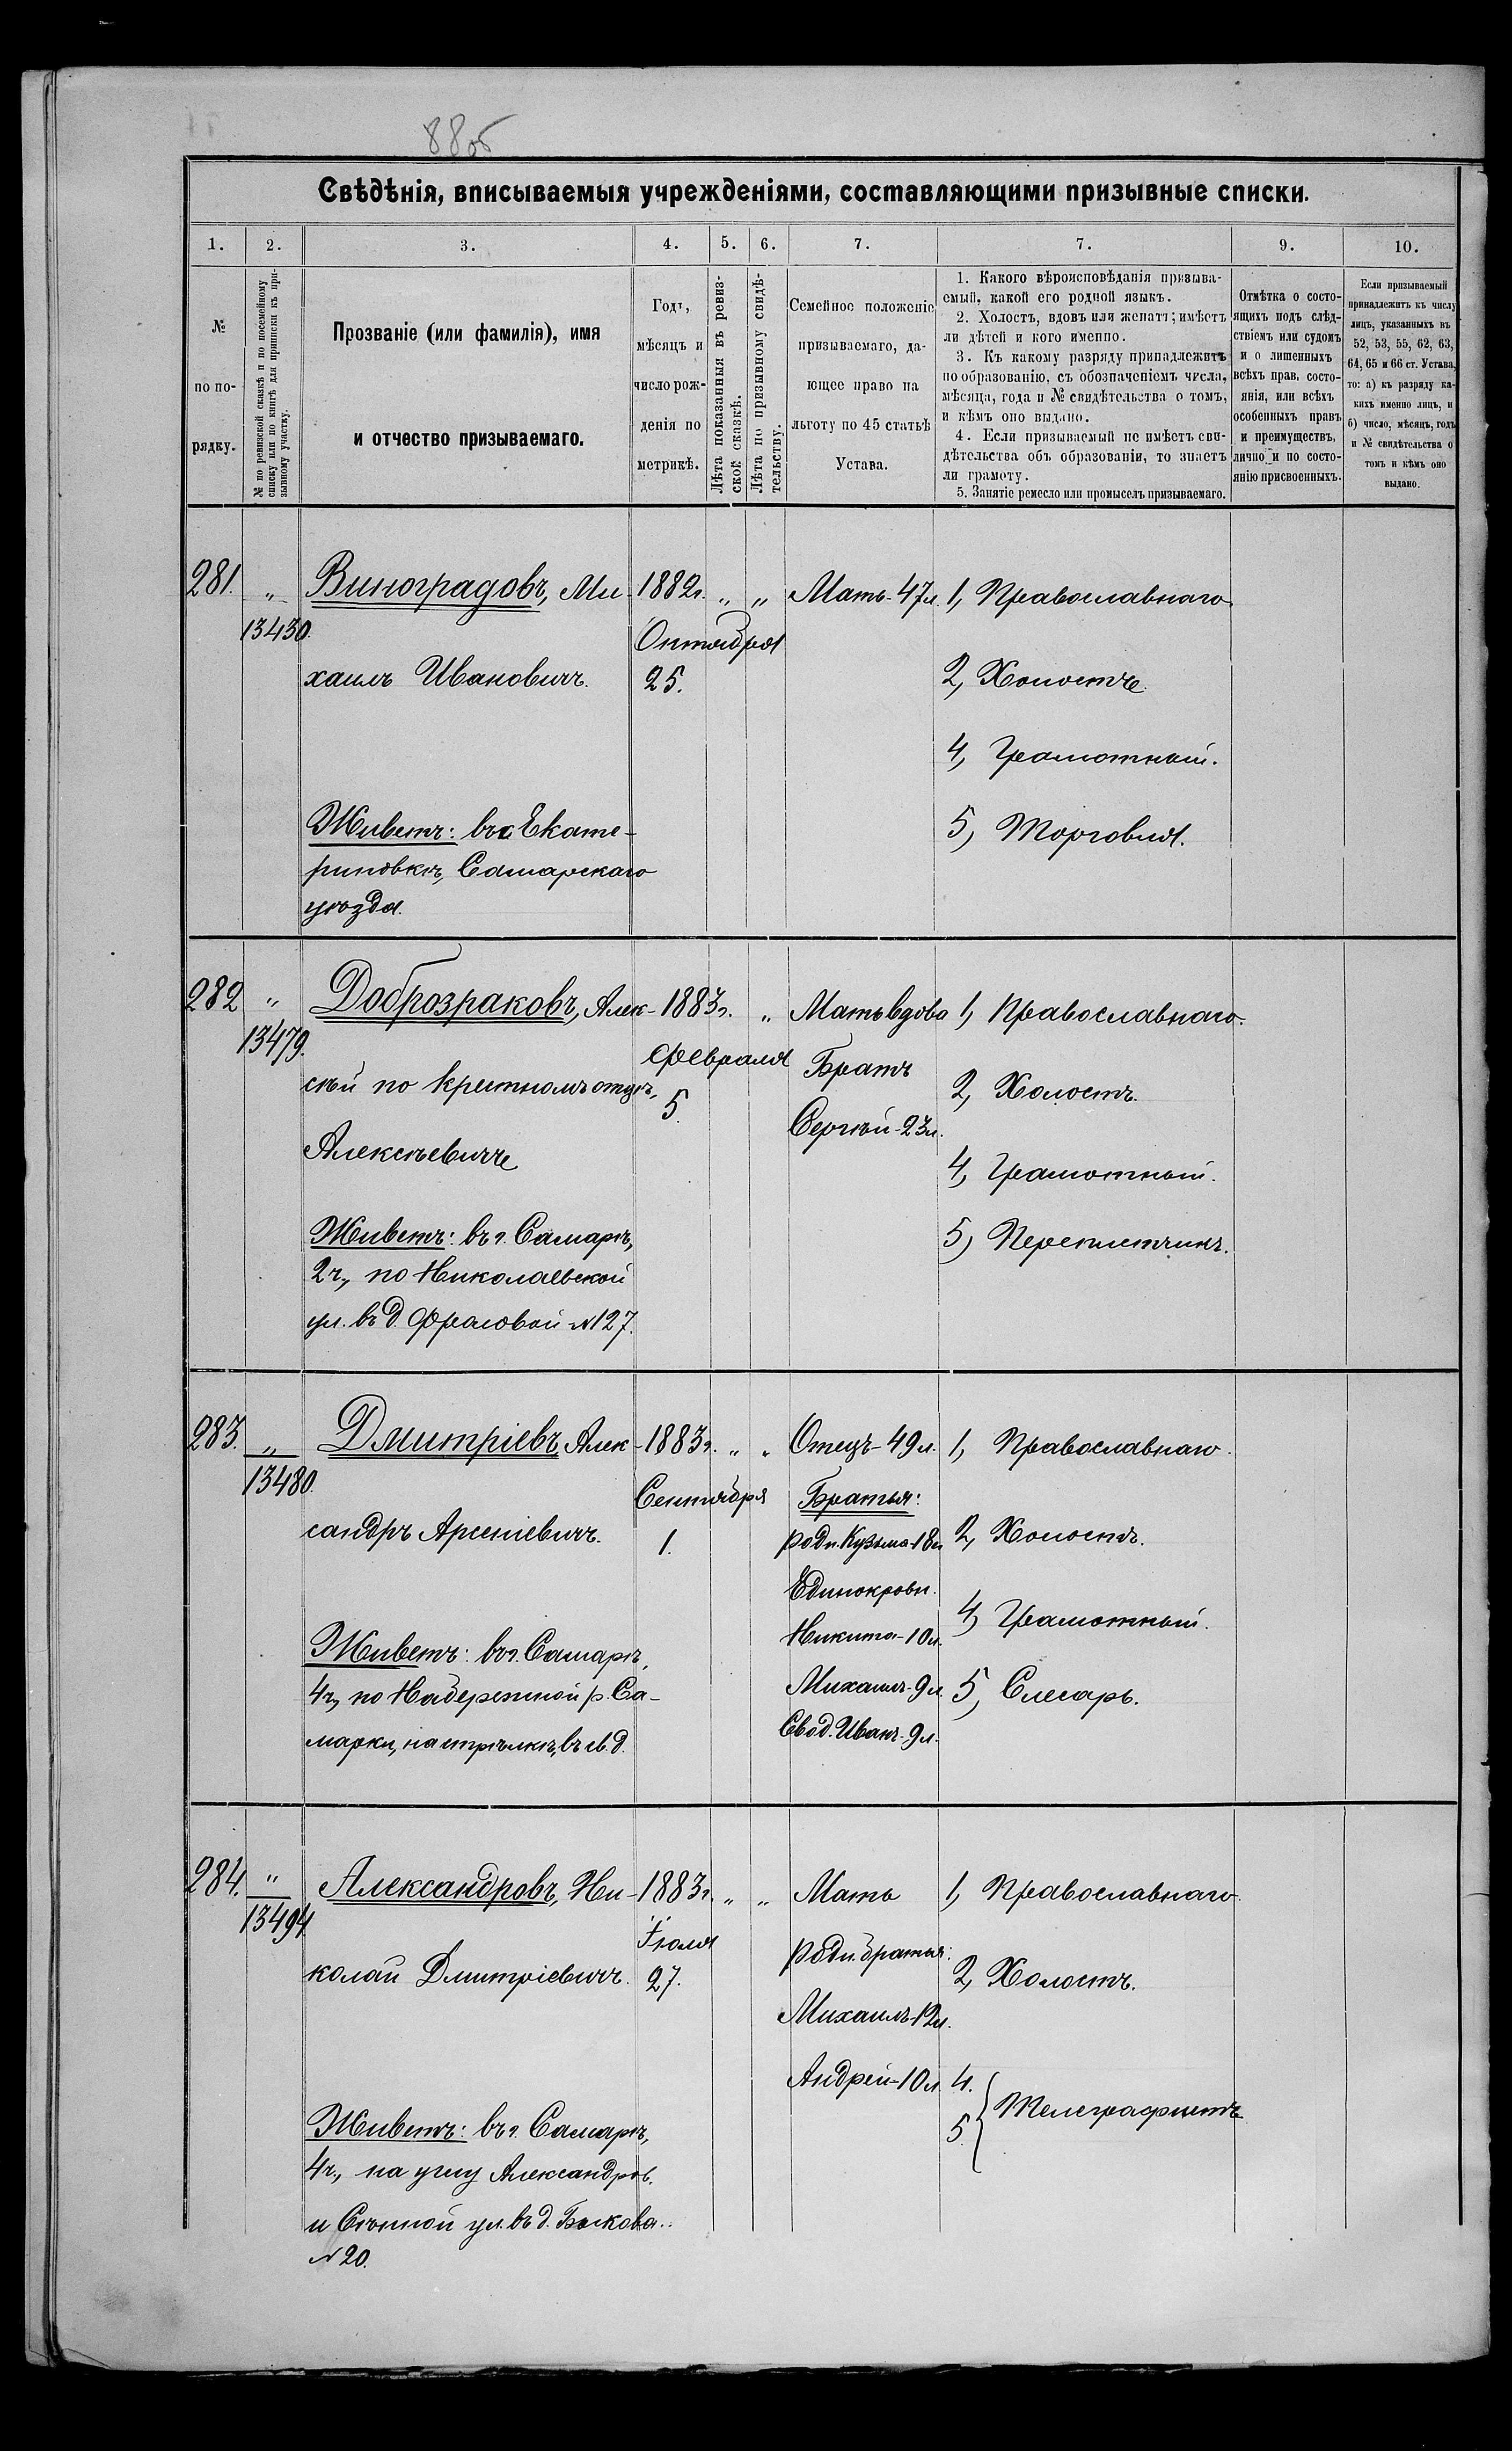 88об
Свѣдѣнія, вписываемыя учрежденіями, составляющими призывные списки.
1. 2. 3. 4. 5. 6. 7. 7. 9. 10.
№
по по-
рядку.
№ по ревизской сказкѣ и по посемейному
списку или по книгѣ для приписки къ при-
зывному участку.
Прозваніе (или фамилія), имя
и отчество призываемаго.
Годъ,
мѣсяцъ и
число рож-
денія по
метрикѣ.
Лѣта показанныя въ ревиз-
ской сказкѣ.
Лѣта по призывному свидѣ-
тельству.
Семейное положеніе
призываемаго, да-
ющее право на
льготу по 45 статьѣ
Устава.
1. Какого вѣроисповѣданія призыва-
емый, какой его родной языкъ.
2. Холостъ, вдовъ или женатъ; имѣетъ
ли дѣтей и кого именно.
3. Къ какому разряду принадлежитъ
по образованію, съ обозначеніемъ числа,
мѣсяца, года и № свидѣтельства о томъ,
и кѣмъ оно выдано.
4. Если призываемый не имѣетъ сви-
дѣтельства объ образованіи, то знаетъ
ли грамоту.
5. Занятіе ремесло или промыселъ призываемаго.
Отмѣтка о состо-
ящихъ подъ слѣд-
ствіемъ или судомъ
и о лишенныхъ
всѣхъ прав, состо-
янія, или всѣхъ
особенныхъ правъ
и преимуществъ,
лично и по состо-
янію присвоенныхъ.
Если призываемый
принадлежитъ къ числу
лицъ, указанныхъ въ
52, 53, 55, 62, 63,
64, 65 и 66 ст. Устава,
то: а) къ разряду ка-
кихъ именно лицъ, и
б) число, мѣсяцъ, годъ
и № свидѣтельства о
томъ и кѣмъ оно
выдано.
281. „ Виноградовъ, Ми- 1882г. „ „ Мать-47л. 1, Православнаго
13430.
Октября
хаилъ Ивановичъ. 25. 2, Холостъ.
4, Грамотный.
Живетъ: въ с. Екате- 5, Торговля.
риновкѣ, Самарскаго
уѣзда.
282 „ Доброзраковъ, Алек- 1883г. „ Мать вдова 1, Православнаго.
13479.
Февраля Братъ
сѣй по крестномъ отцѣ, 5. 2, Холостъ.
Сергѣй-23л.
Алексѣевичъ
4, Грамотный.
Живетъ: въ г. Самарѣ, 5, Переплетчикъ.
2ч., по Николаевской
ул. въ д. Фроловой №127.
283. „ Дмитріевъ, Алек- 1883г. „ „ Отецъ-49л. 1, Православнаго.
13480.
Сентября Братья:
сандръ Арсеніевичъ. 1. родн. Кузьма-18л 2, Холостъ.
Единокровн.
Никита-10л. 4, Грамотный.
Живетъ: въ г. Самарѣ,
4ч., по Набережной р. Са- Михаилъ-9л. 5, Слесарь.
марки, на стрѣлкѣ, въ св. д. Свод. Иванъ-9л.
284. „ Александровъ, Ни- 1883г. „ „ Мать 1, Православнаго
13494.
Іюля родн. братья:
колай Дмитріевичъ. 27. 2, Холостъ.
Михаилъ-12л.
Андрей-10л. 4.
5. Телеграфистъ
Живетъ: въ г. Самарѣ,
4ч., на углу Александров.
и Сѣнной ул. въ д. Быкова.
№20.